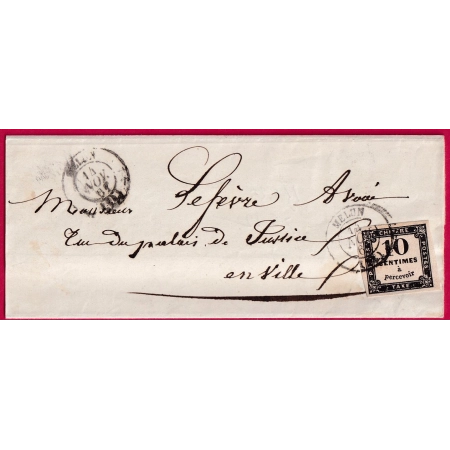 MELUN
Monsieur Lefèvre Avoué
Rue du palais de Justice
en Ville
MELUN
CHIFFRE
POSTES
10
CENTIMES
à
percevoir
TAXE